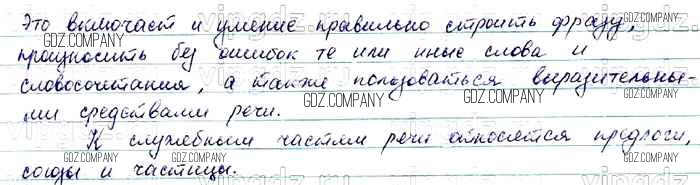 Это включает и умение правильно строить фразу,
произносить без ошибок те или иные слова и
словосочетания, а также пользоваться выразительны-
ми средствами речи.
К служебным частям речи относятся предлоги,
союзы и частицы.